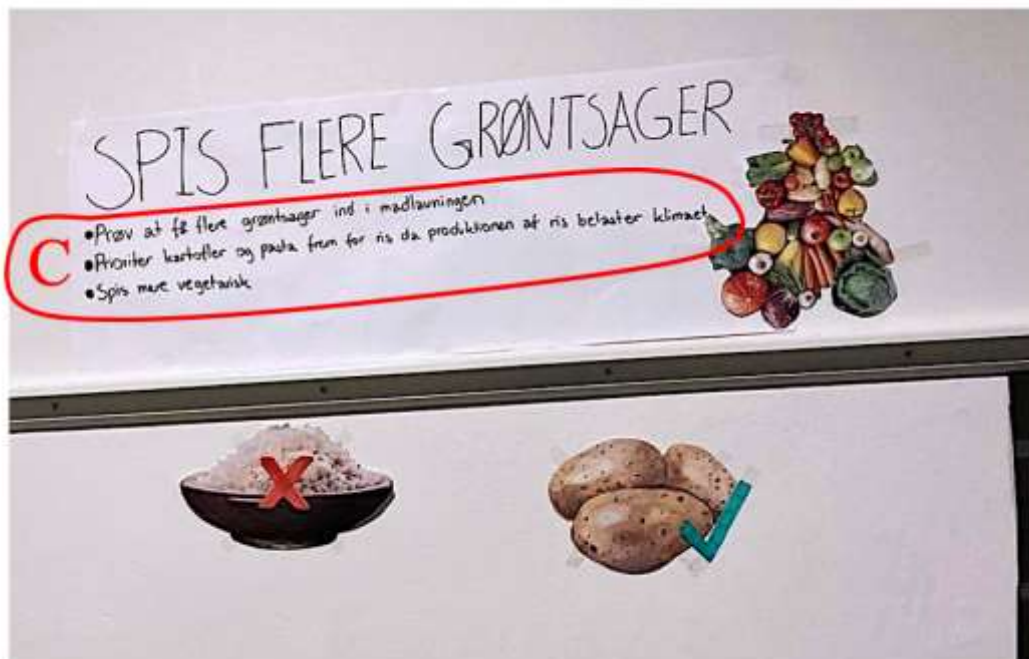 SPIS FLERE GRØNTSAGER
C
•Prøv at få flere grøntsager ind i madlavningen
•Prioriter kartofler og pasta frem for ris da produktionen af ris belaster klimaet
•Spis mere vegetarisk